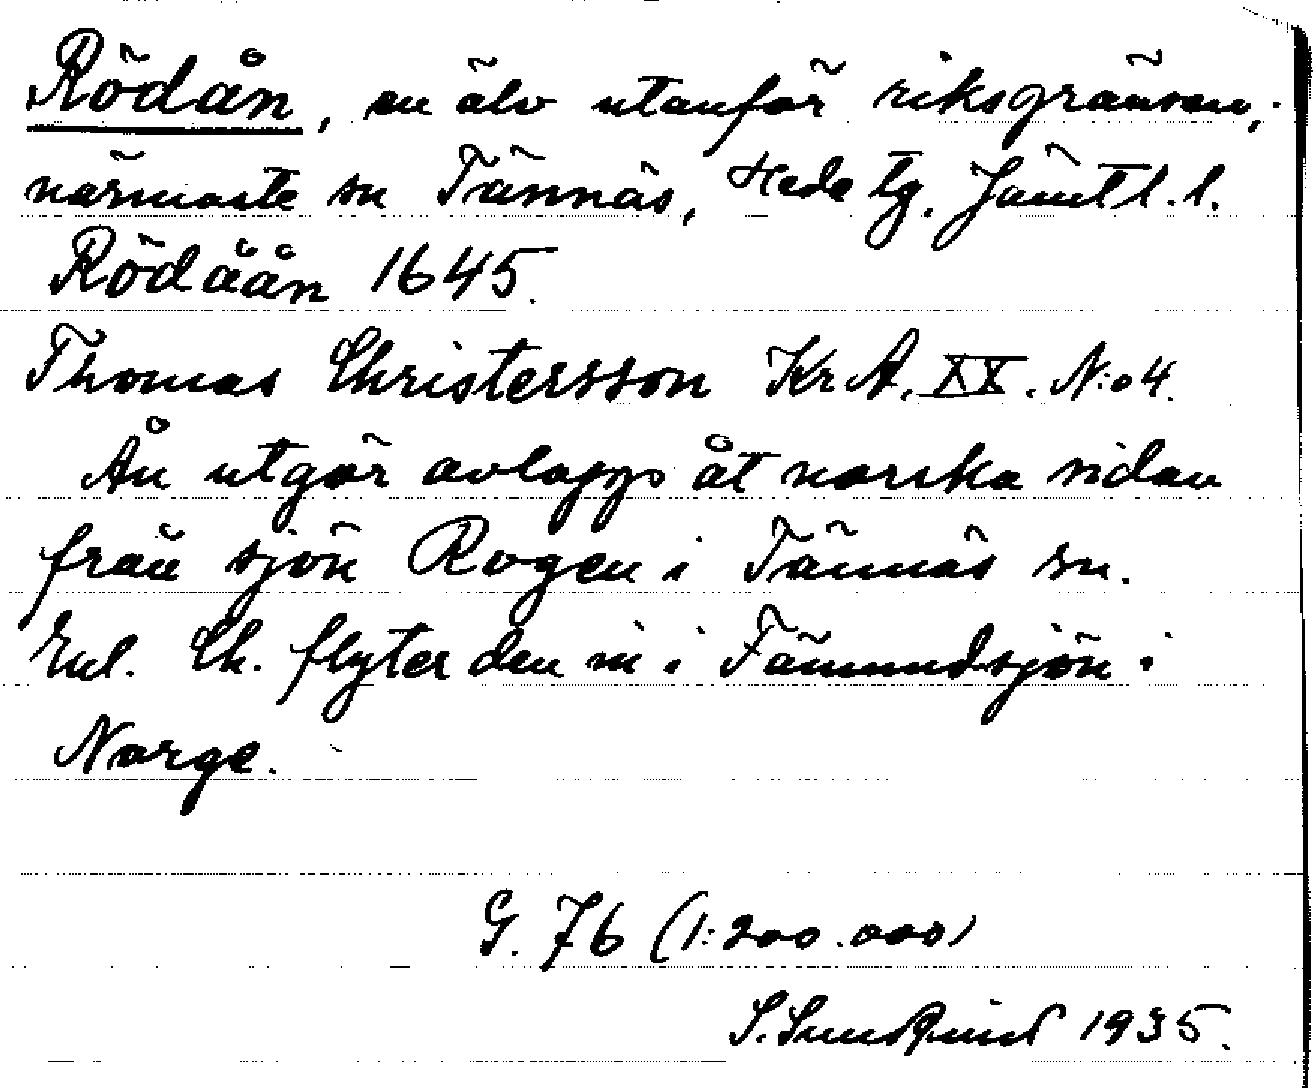 Rödån, en älv utanför riksgränsen,
närmaste sn Tännäs, Hede tg. Jämtl. l.
Rödåån 1645.
Thomas Christersson Kr A. XX. N:o 4.
Ån utgör avlopp åt norska sidan
från sjön Rogen i Tännäs sn.
Enl. Ch. flyter den in i Fämundsjön i
Norge.
G. 76 (1:200.000)
S. 1935.